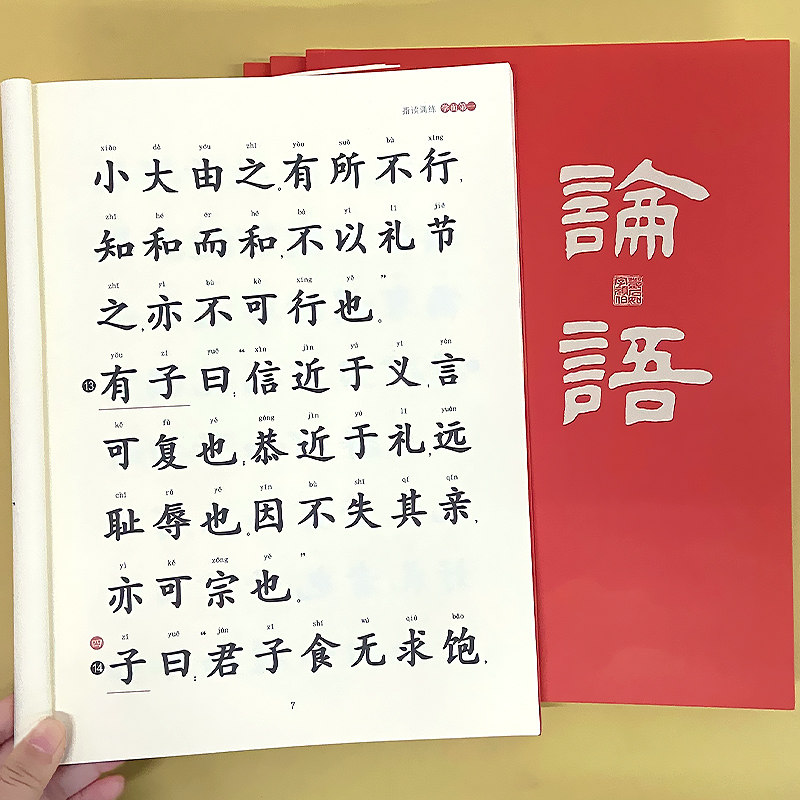 指读训练 学而第一
xiǎo dà yóu zhī yǒu suǒ bù xíng
小大由之。有所不行，
zhī hé ér hé bù yǐ lǐ jié
知和而和，不以礼节
zhī yì bù kě xíng yě
之，亦不可行也。”
yǒu zǐ yuē xìn jìn yú yì yán
13 有子曰：“信近于义，言
kě fù yě gōng jìn yú lǐ yuǎn
可复也；恭近于礼，远
chǐ rǔ yě yīn bù shī qí qīn
耻辱也。因不失其亲，
yì kě zōng yě
亦可宗也。”
四
zǐ yuē jūn zǐ shí wú qiú bǎo
14 子曰：“君子食无求饱，
7
論
語